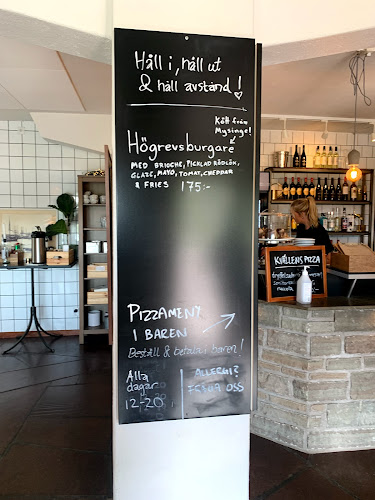 Håll i, håll ut
& håll avstånd!
Kött från
Mysinge!
Högrevsburgare
MED BRIOCHE, PICKLAD RÖDLÖK,
GLAZE, MAYO, TOMAT, CHEDDAR
& FRIES 175:-
PIZZAMENY
I BAREN
Beställ & betala i baren!
Alla
dagar
12-20
ALLERGI?
FRÅGA OSS
KVÄLLENS PIZZA